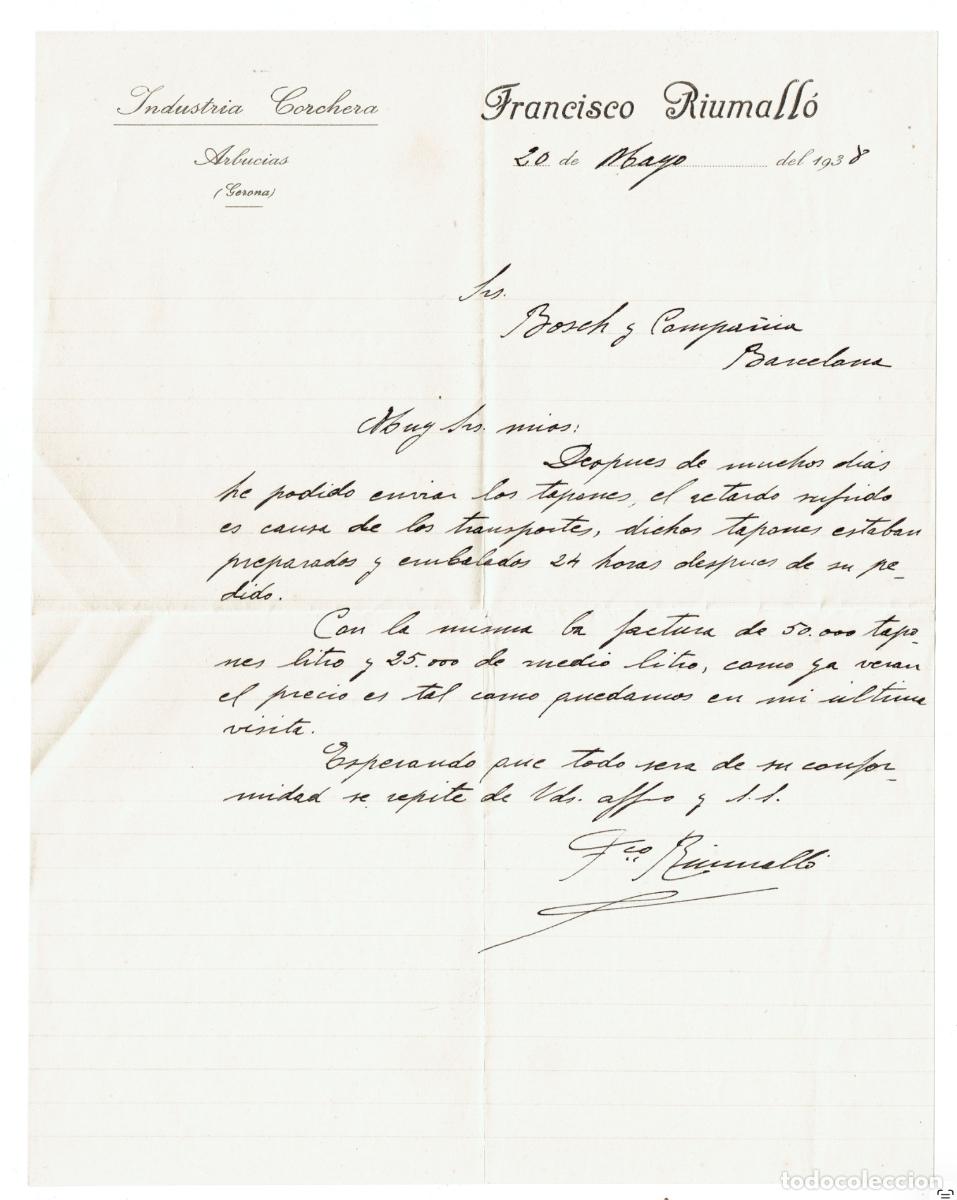 Industria Corchera
Arbucias
(Gerona)
Francisco Riumalló
20 de Mayo del 1938
Srs.
Bosch y Compañia
Barcelona
Muy Srs. mios:
Despues de muchos dias
he podido enviar los tapones, el retardo sufrido
es causa de los transportes, dichos tapones estaban
preparados y embalados 24 horas despues de su pe-
dido.
Con la misma ba factura de 50.000 tapo-
nes litro y 25.000 de medio litro, como ya veran
el precio es tal como quedamos en mi ultima
visita.
Esperando que todo sera de su confor-
midad se repite de Vds. affmo y s.s.
Fco Riumalló
todocoleccion